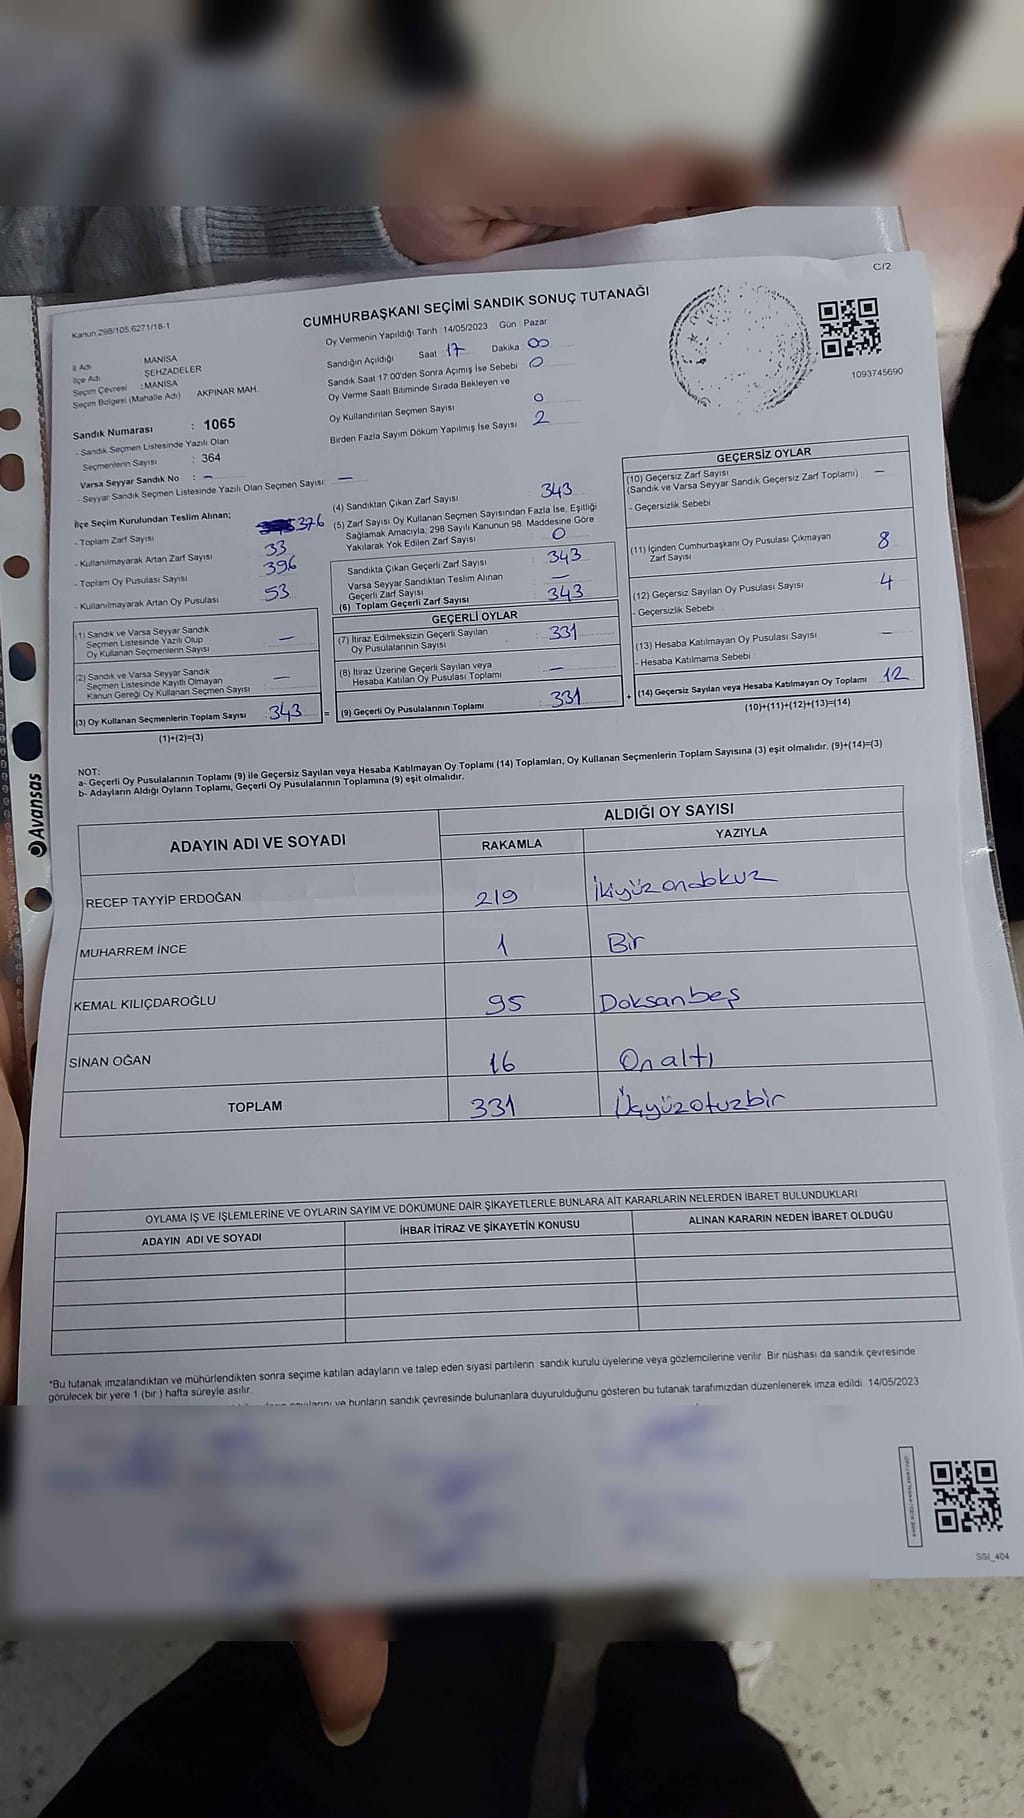 C/2
Kanun:298/105.6271/18-1
CUMHURBAŞKANI SEÇİMİ SANDIK SONUÇ TUTANAĞI
1093745690
İl Adı MANİSA
İlçe Adı ŞEHZADELER
Seçim Çevresi :MANİSA
Seçim Bölgesi (Mahalle Adı) AKPINAR MAH.
Sandık Numarası : 1065
- Sandık Seçmen Listesinde Yazılı Olan
Seçmenlerin Sayısı : 364
Varsa Seyyar Sandık No : —
- Seyyar Sandık Seçmen Listesinde Yazılı Olan Seçmen Sayısı: —
Oy Vermenin Yapıldığı Tarih : 14/05/2023 Gün : Pazar
Sandığın Açıldığı Saat 17 Dakika 00
Sandık Saat 17:00'den Sonra Açımış İse Sebebi 0
Oy Verme Saati Bitiminde Sırada Bekleyen ve
Oy Kullandırılan Seçmen Sayısı 0
Birden Fazla Sayım Döküm Yapılmış İse Sayısı 2
İlçe Seçim Kurulundan Teslim Alınan;
- Toplam Zarf Sayısı 376
- Kullanılmayarak Artan Zarf Sayısı 33
- Toplam Oy Pusulası Sayısı 396
- Kullanılmayarak Artan Oy Pusulası 53
(1) Sandık ve Varsa Seyyar Sandık
Seçmen Listesinde Yazılı Olup
Oy Kullanan Seçmenlerin Sayısı —
(2) Sandık ve Varsa Seyyar Sandık
Seçmen Listesinde Kayıtlı Olmayan
Kanun Gereği Oy Kullanan Seçmen Sayısı —
(3) Oy Kullanan Seçmenlerin Toplam Sayısı : 343 =
(1)+(2)=(3)
(4) Sandıktan Çıkan Zarf Sayısı 343
(5) Zarf Sayısı Oy Kullanan Seçmen Sayısından Fazla İse, Eşitliği
Sağlamak Amacıyla, 298 Sayılı Kanunun 98. Maddesine Göre
Yakılarak Yok Edilen Zarf Sayısı 0
Sandıkta Çıkan Geçerli Zarf Sayısı 343
Varsa Seyyar Sandıktan Teslim Alınan
Geçerli Zarf Sayısı —
(6) Toplam Geçerli Zarf Sayısı 343
GEÇERLİ OYLAR
(7) İtiraz Edilmeksizin Geçerli Sayılan
Oy Pusulalarının Sayısı 331
(8) İtiraz Üzerine Geçerli Sayılan veya
Hesaba Katılan Oy Pusulası Toplamı —
(9) Geçerli Oy Pusulalarının Toplamı : 331 +
GEÇERSİZ OYLAR
(10) Geçersiz Zarf Sayısı —
(Sandık ve Varsa Seyyar Sandık Geçersiz Zarf Toplamı)
- Geçersizlik Sebebi
(11) İçinden Cumhurbaşkanı Oy Pusulası Çıkmayan
Zarf Sayısı 8
(12) Geçersiz Sayılan Oy Pusulası Sayısı 4
- Geçersizlik Sebebi
(13) Hesaba Katılmayan Oy Pusulası Sayısı —
- Hesaba Katılmama Sebebi
(14) Geçersiz Sayılan veya Hesaba Katılmayan Oy Toplamı 12
(10)+(11)+(12)+(13)=(14)
NOT:
a- Geçerli Oy Pusulalarının Toplamı (9) ile Geçersiz Sayılan veya Hesaba Katılmayan Oy Toplamı (14) Toplamları, Oy Kullanan Seçmenlerin Toplam Sayısına (3) eşit olmalıdır. (9)+(14)=(3)
b- Adayların Aldığı Oyların Toplamı, Geçerli Oy Pusulalarının Toplamına (9) eşit olmalıdır.
Avansas
ADAYIN ADI VE SOYADI ALDIĞI OY SAYISI
RAKAMLA YAZIYLA
RECEP TAYYİP ERDOĞAN 219 İkiyüzondokuz
MUHARREM İNCE 1 Bir
KEMAL KILIÇDAROĞLU 95 Doksanbeş
SİNAN OĞAN 16 Onaltı
TOPLAM 331 Üçyüzotuzbir
OYLAMA İŞ VE İŞLEMLERİNE VE OYLARIN SAYIM VE DÖKÜMÜNE DAİR ŞİKAYETLERLE BUNLARA AİT KARARLARIN NELERDEN İBARET BULUNDUKLARI
ADAYIN ADI VE SOYADI İHBAR İTİRAZ VE ŞİKAYETİN KONUSU ALINAN KARARIN NEDEN İBARET OLDUĞU
*Bu tutanak imzalandıktan ve mühürlendikten sonra seçime katılan adayların ve talep eden siyasi partilerin sandık kurulu üyelerine veya gözlemcilerine verilir. Bir nüshası da sandık çevresinde
görülecek bir yere 1 (bir ) hafta süreyle asılır.
ve bunların sandık çevresinde bulunanlara duyurulduğunu gösteren bu tutanak tarafımızdan düzenlenerek imza edildi. 14/05/2023
SSI_404